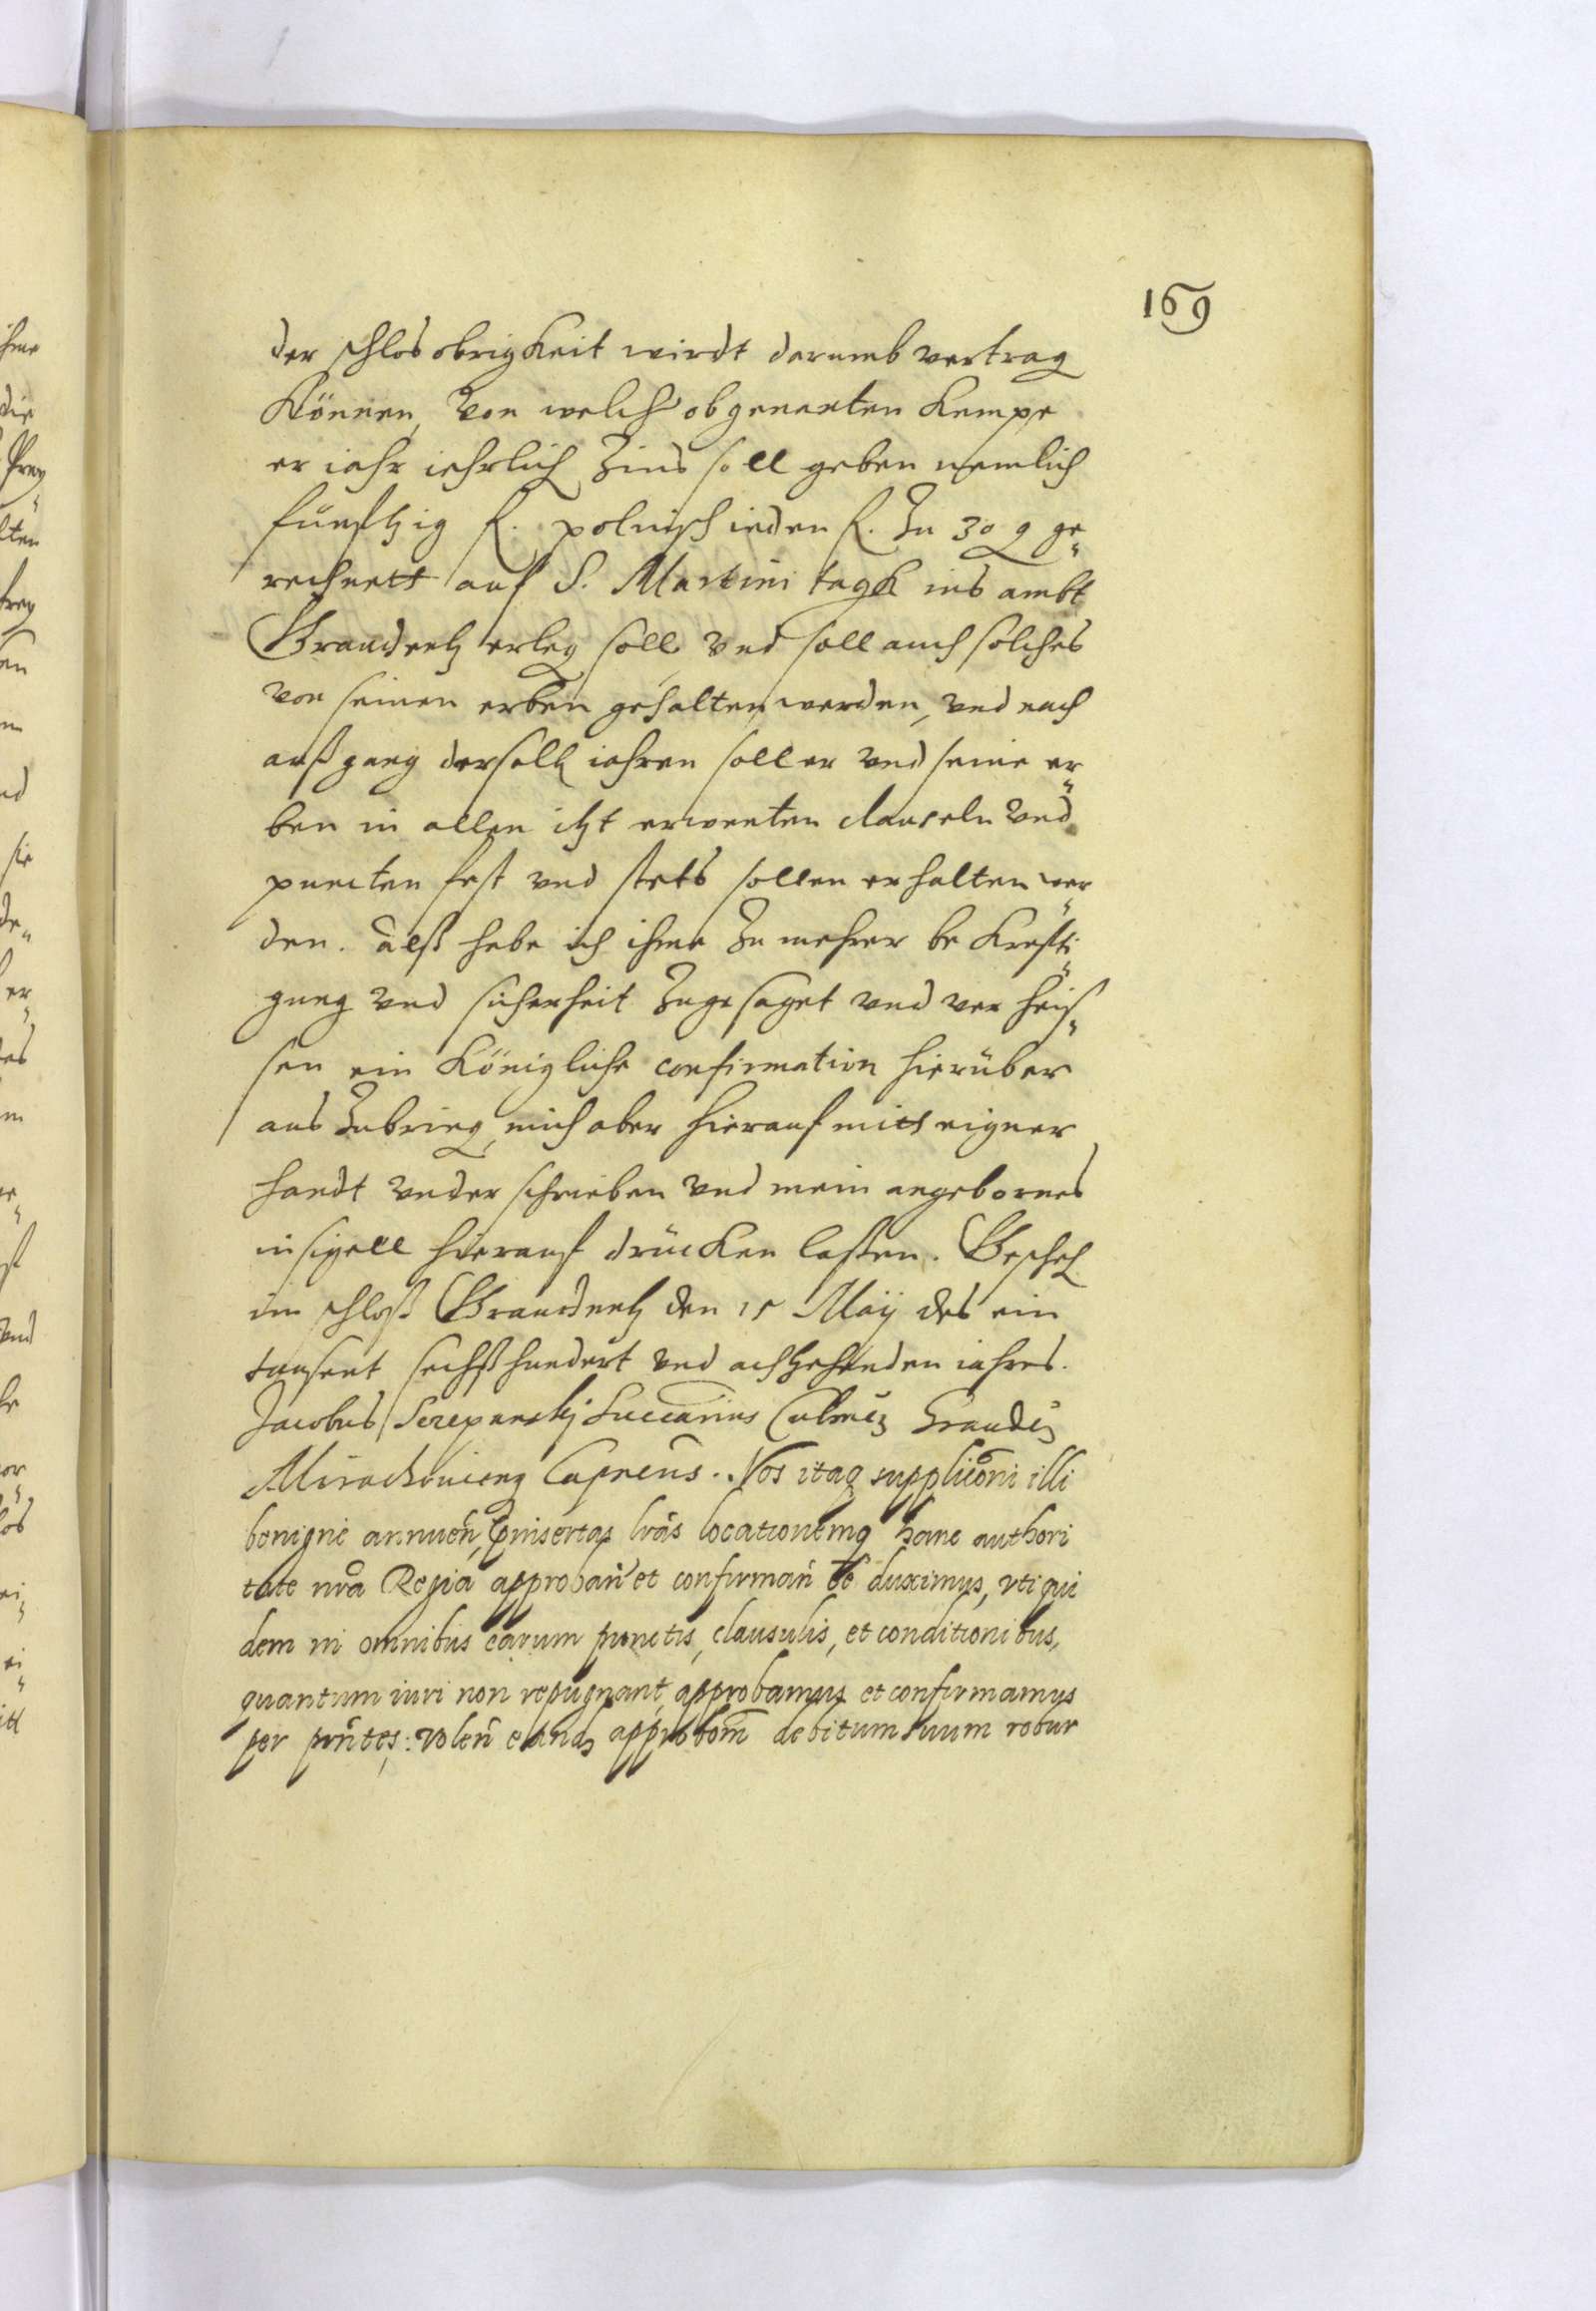 169
der schlos obrigkeit wirdt darumb vertrag
können, von welch obgenanten Kempe
er iahr iehrlich Zins soll geben nemlich
funfzig f. polnisch ieden f. Zu 30 g ge„
rechnett auf S. Martini tagk ins ambt
Graudentz erleg soll und soll auch solches
von seinen erben gehalten werden, und nach
außgang derselb iahren soll er und seine er„
ben in allen itzt erwenten clauseln und
puncten fest und stets sollen erhalten wer„
den. Alß habe ich ihme Zu mehrer bekrefti„
gung und sicherheit Zugesaget und verheis„
sen ein Königliche confirmation hierüber
aus Zubring, mich aber hierauf mitt eigner
handt underschrieben und mein angebornes
insigell hierauf drücken lassen. Gescheh
im schloß Graudentz den 15 Maij des ein
tausent sechßhundert und achtzehenden iahres.
Jacobus Sczepanskj Succamius Culmen Grauden
Capneus. Nos itaq suppliconi illi
benigne annuen, lras locationemq hanc authori
tate nra Regia approban et confirman ee duximus, vti qui
dem in omnibus earum punctis, clausulis, et conditionibus,
quantum iuri non repugnant, approbamus et confirmamus
per pntes: volen eand approbom debitum suum robur